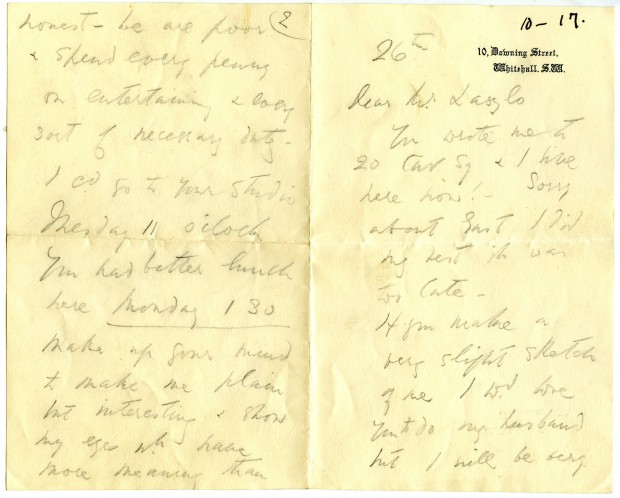 10 – 17.
10, Downing Street,
Whitehall. S.W.
26th
Dear Mr Laszlo
You wrote me to
20 Cav Sq & I live
here now! – Sorry
about East I did
my best it was
too late –
If you make a
very slight sketch
of me I wd love
you to do my husband
but I will be very
2
honest – we are poor
& spend every penny
on entertaining & every
sort of necessary duty –
I cd go to your studio
Tuesday 11 o'clock
You had better lunch
here Monday 1 30
make up your mind
to make me plain
but interesting & show
my eyes wh have
more meaning than